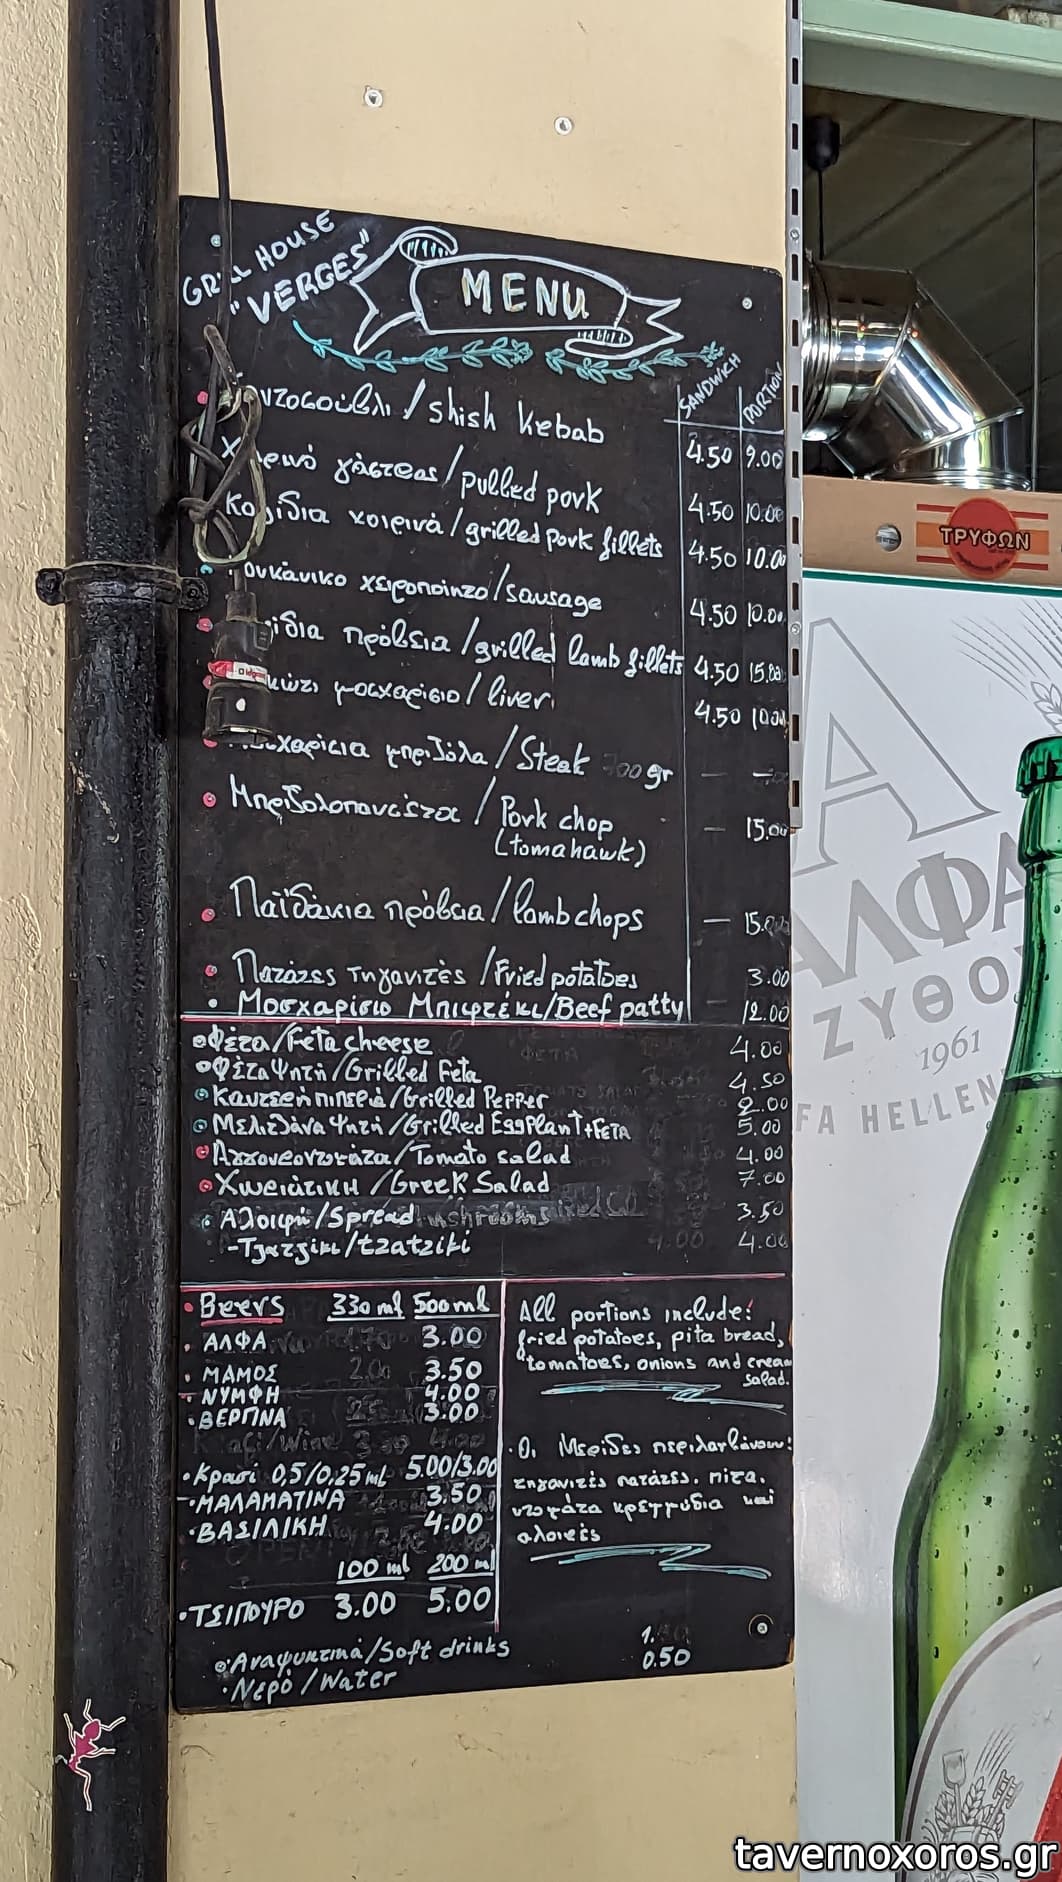 GRILL HOUSE
"VERGES"
MENU
SANDWICH PORTION
/ shish kebab 4.50 9.00
γάστρας / pulled pork 4.50 10.00
χοιρινά / grilled pork fillets 4.50 10.00
χειροποίητο / sausage 4.50 10.00
πρόβεια / grilled lamb fillets 4.50 15.00
μοσχαρίσιο / liver 4.50 10.00
μπριζόλα / Steak 700gr — —
Μπριζολοπανσέτα / Pork chop — 15.00
(tomahawk)
Παϊδάκια πρόβεια / lamb chops — 15.00
Πατάτες τηγανιτές / Fried potatoes 3.00
Μοσχαρίσιο Μπιφτέκι / Beef patty 12.00
Φέτα / Feta cheese 4.00
Φέτα Ψητή / Grilled Feta 4.50
Καυτερή πιπεριά / Grilled Pepper 2.00
Μελιτζάνα Ψητή / Grilled EggPlant + FETA 5.00
Αγγουροντομάτα / Tomato salad 4.00
Χωριάτικη / Greek Salad 7.00
Αλοιφή / Spread 3.50
-Τζατζίκι / tzatziki 4.00
Beers 330 ml 500 ml
ΑΛΦΑ 3.00
ΜΑΜΟΣ 2.00 3.50
ΝΥΜΦΗ 4.00
ΒΕΡΓΙΝΑ 3.00
Κρασί 0,5/0,25 ml 5.00/3.00
ΜΑΛΑΜΑΤΙΝΑ 3.50
ΒΑΣΙΛΙΚΗ 4.00
100 ml 200 ml
ΤΣΙΠΟΥΡΟ 3.00 5.00
All portions include:
fried potatoes, pita bread,
tomatoes, onions and cream
salad.
Οι Μερίδες περιλαμβάνουν:
τηγανιτές πατάτες, πίτα,
ντομάτα κρεμμύδια και
αλοιφές
Αναψυκτικά / Soft drinks 1.50
Νερό / Water 0.50
ΤΡΥΦΩΝ
Α
ΑΛΦΑ
ΖΥΘΟΣ
1961
FA HELLEN
tavernoxoros.gr